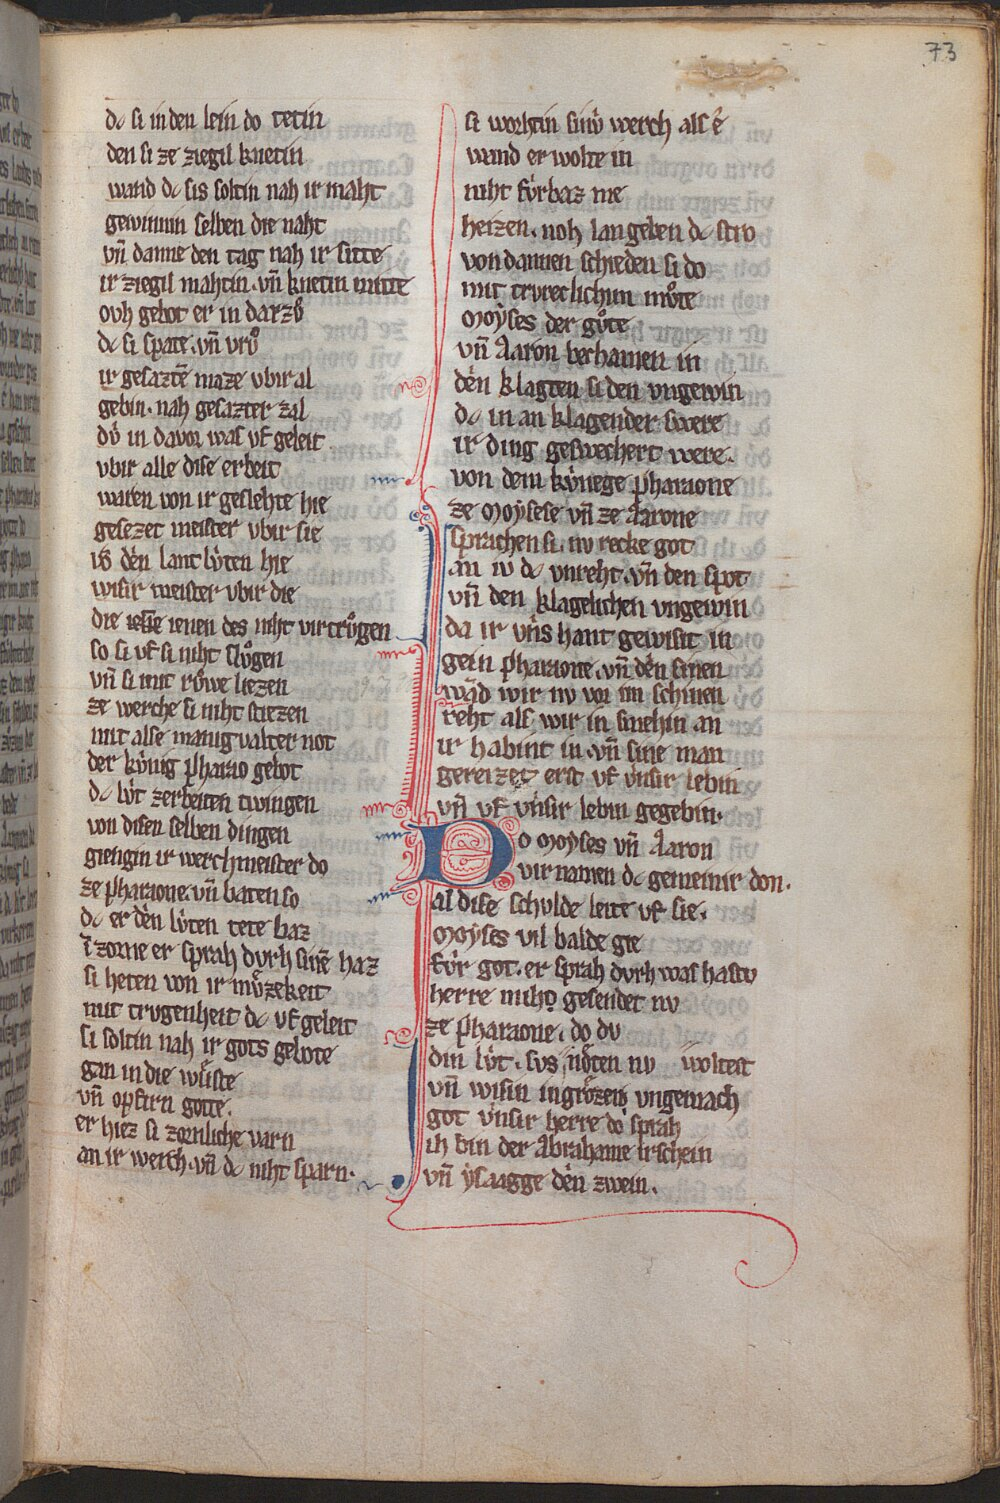 73
dc si in den lein do tetin
den si ze ziegil knetin
wand dc sis soltin nah ir maht
gewinnin selben die naht
vn̄ danne den tag nah ir sitte
ir ziegil mahtin. vn̄ knetin mitte
ovh gebot er in darzv̊
dc si spate. vn̄ vrv̊
ir gesaztē maze vbir al
gebin. nah gesazter zal
dv́ in davor was vf geleit
vbir alle dise erbeit
waren von ir geslehte hie
gesezet meister vbir sie
vō den lant lv́ten hie
wisir meister vbir die
die ienen des niht virtrv̊gen
so si vf si niht slv̊gen
vn̄ si mit rv̊we liezen
ze werche si niht stiezen
mit alse manigvalter not
der kv́nig pharao gebot
dc lv́t zerbeiten twingen
von disen selben dingen
giengin ir werchmeister do
ze pharaone. vn̄ baten so
dc er den lv́ten tete baz
ī zorne er sprah dvrh sinē haz
si heten von ir mv̊zekeit
mit trvgenheit dc vf geleit
si soltin nah ir gots gebote
gan in die wv́ste
vn̄ opfirn gotte.
er hiez si zornliche varn
an ir werch. vn̄ dc niht sparn.
si worhtin sinv́ werch als ê
wand er wolte in
niht fv́rbaz me
heizen. noh lan geben dc stro
von dannen schieden si do
mit trvreclichim mv̊te
Moẏses der gv̊te
vn̄ Aaron bechamen in
den klagten si den vngewin
dc in an klagender swere
ir ding geswechert were.
von dem kv́nege pharaone
ze Moẏsese vn̄ ze Aarone
sprachen si. nv recke got
an iv dc vnreht. vn̄ den spot
vn̄ den klagelichen vngewin
da ir vns hant gewisit in
gein pharaone. vn̄ den sinen
wād wir nv vor im schinen
reht als wir in smehin an
ir habint in. vn̄ sine man
gereizet erst vf v́nsir lebin
vn̄ vf v́nsir lebin gegebin.
Do Moyses vn̄ Aaron
virnamen dc gemeinir don.
al dise schvlde leite vf sie.
Moẏses vil balde gie
fv́r got. er sprah dvrh was hastv
herre mih gesendet nv
ze pharaone. do dv
din lv́t. svs nôten nv woltest
vn̄ wisin in grôzen vngemach
got v́nsir herre do sprah
ih bin der Abrahame irschein
vn̄ ẏsaagge den zwein.